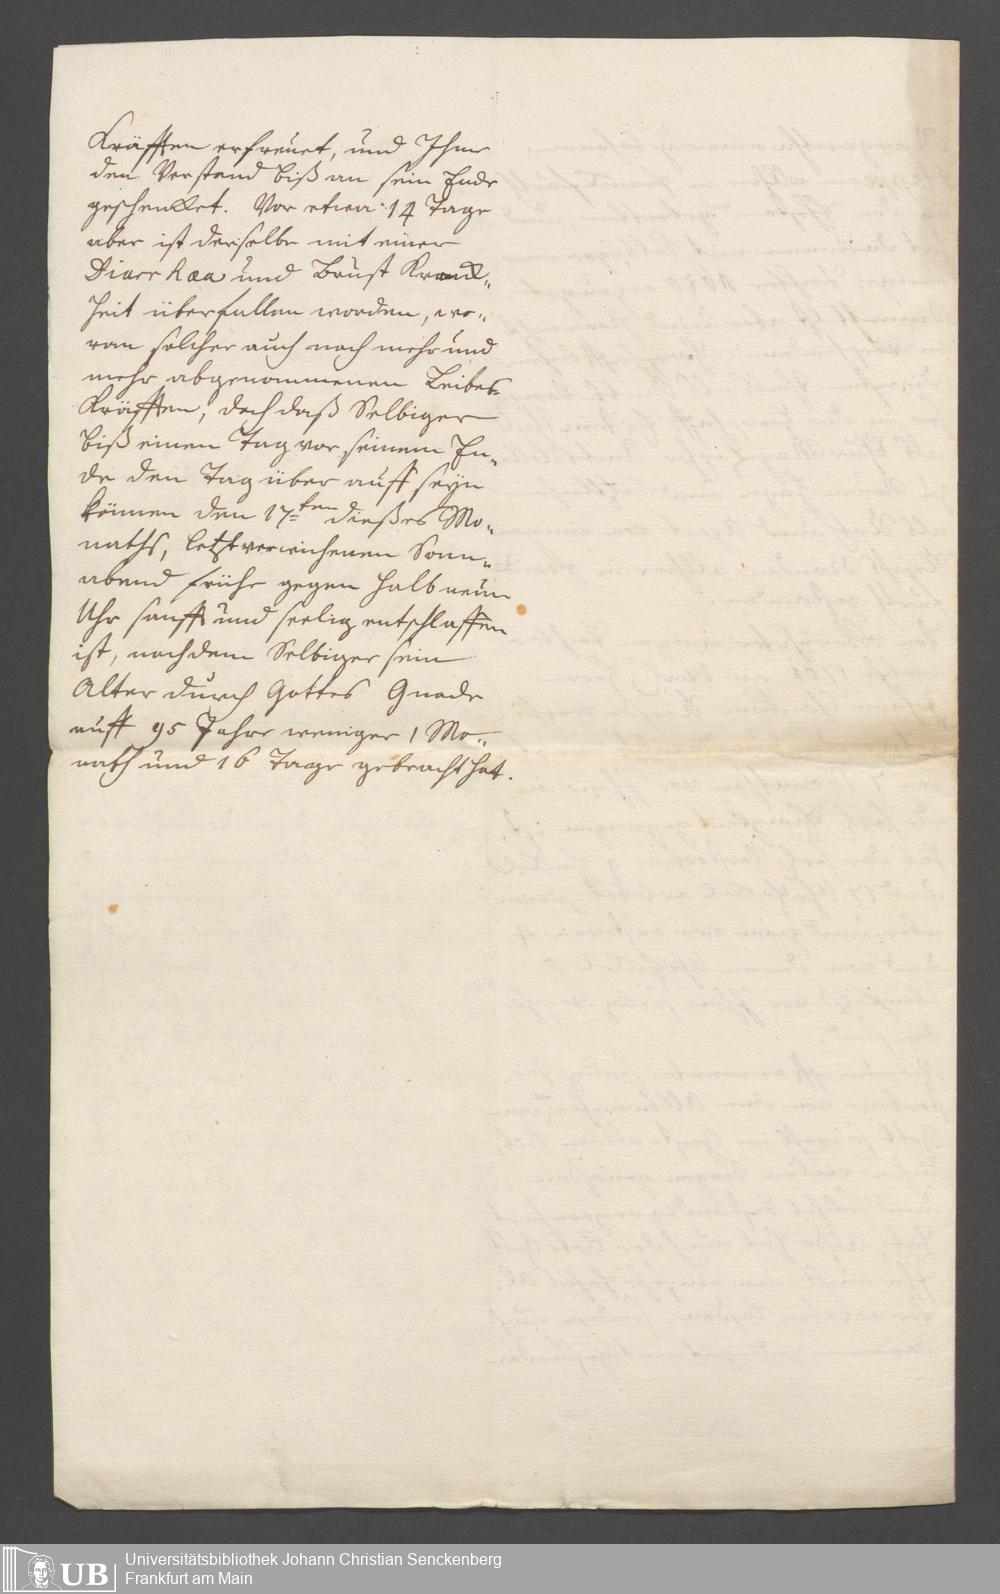 Kräfften erfreuet, und Ihme
den Verstand biß an sein Ende
geschencket. Vor etwa 14 Tage
aber ist derselbe mit einer
Diarrhaea und Brust Kranck„
heit überfallen worden, wo„
ran solcher auch nach mehr und
mehr abgenommenen Leibes-
Kräfften, doch daß Selbiger
biß einen Tag vor seinem En„
de den Tag über auff seyn
können den 17ten dießes Mo„
naths, letztverwichenen Sonn„
abend frühe gegen halb neun
Uhr sanfft und seelig entschlaffen
ist, nachdem Selbiger sein
Alter durch Gottes Gnade
auff 95 Jahre weniger 1 Mo„
nath und 16 Tage gebracht hat.
UB
Universitätsbibliothek Johann Christian Senckenberg
Frankfurt am Main